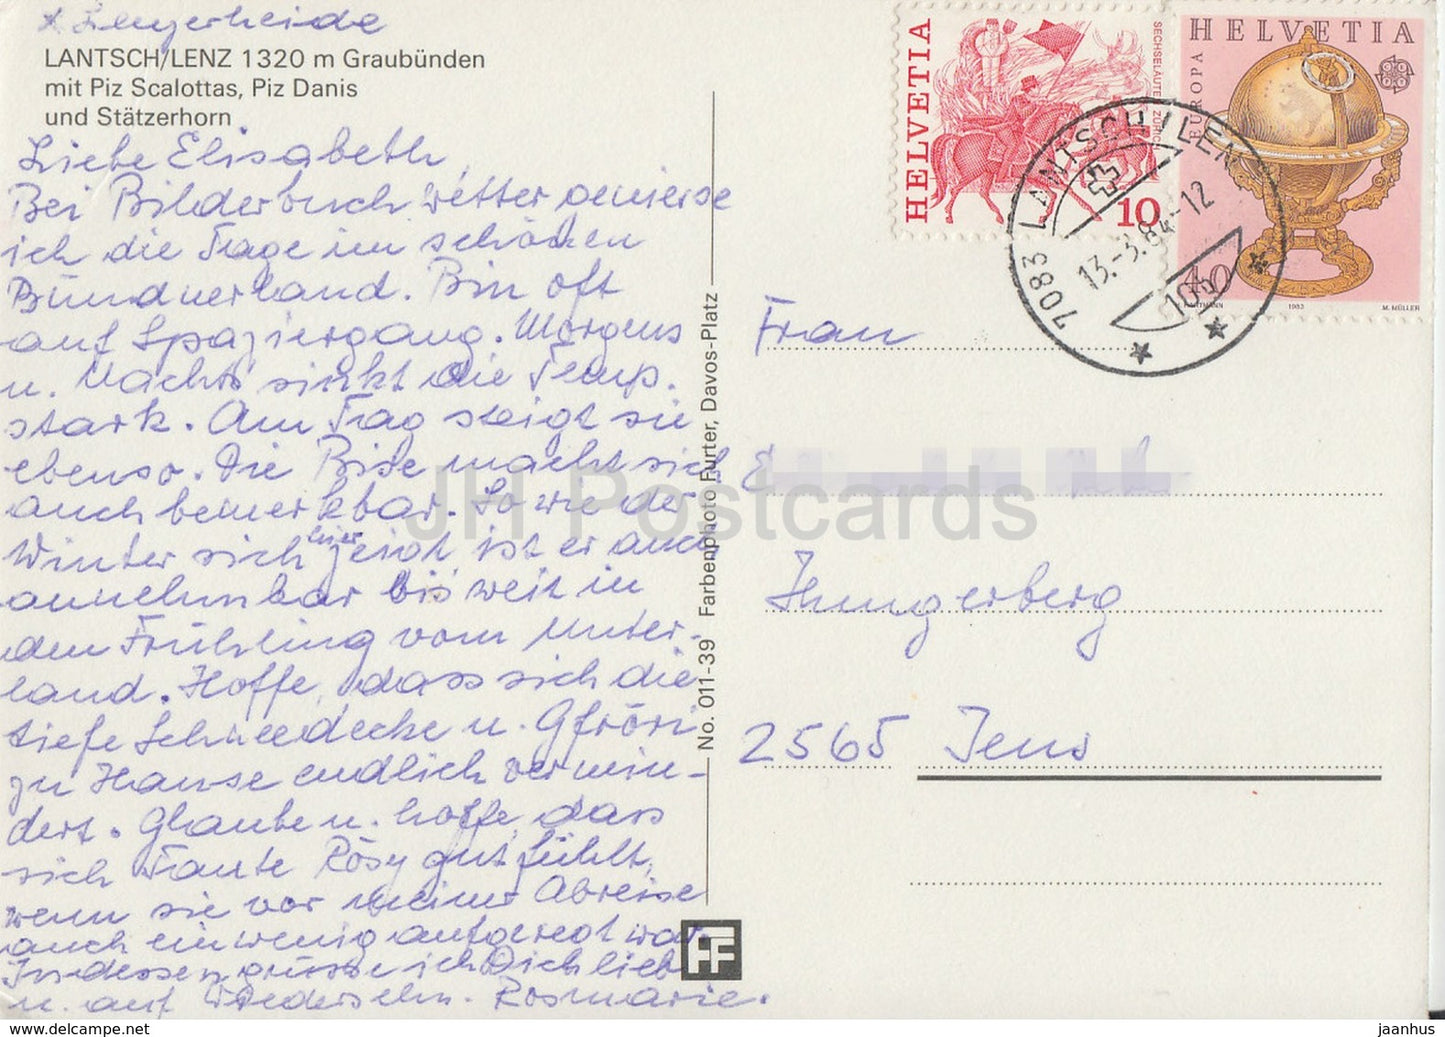 x Lenzerheide
LANTSCH/LENZ 1320 m Graubünden
mit Piz Scalottas, Piz Danis
und Stätzerhorn
Liebe Elisabeth,
Bei Bilderbuchwetter geniesse
ich die Tage im schönen
Bündnerland. Bin oft
auf Spaziergang. Morgens
u. Nachts sinkt die Temp.
stark. Am Tag steigt sie
ebenso. Die Bise macht sich
auch bemerkbar. So wie der
Winter sich hier zeigt, ist er auch
annehmbar bis weit in
den Frühling vom Unter-
land. Hoffe, dass sich die
tiefe Schneedecke u. Gfröri
zu Hause endlich vermin-
dert. Glaube u. hoffe, dass
sich Tante Rösy gut fühlt,
wenn sie vor meiner Abreise
auch ein wenig aufgeregt war.
Indessen grüsse ich Dich lieb
u. auf Wiedersehn. Rosmarie.
No. 011-39 Farbenphoto Furter, Davos-Platz
FF
HELVETIA
SECHSELÄUTEN ZÜRICH
10
HELVETIA
EUROPA
40
1983
M. MÜLLER
7083 LANTSCH/LENZ
13.-3.84-12
Frau
E
Hungerberg
2565 Jens
JH Postcards
jaanhus — https://www.delcampe.net